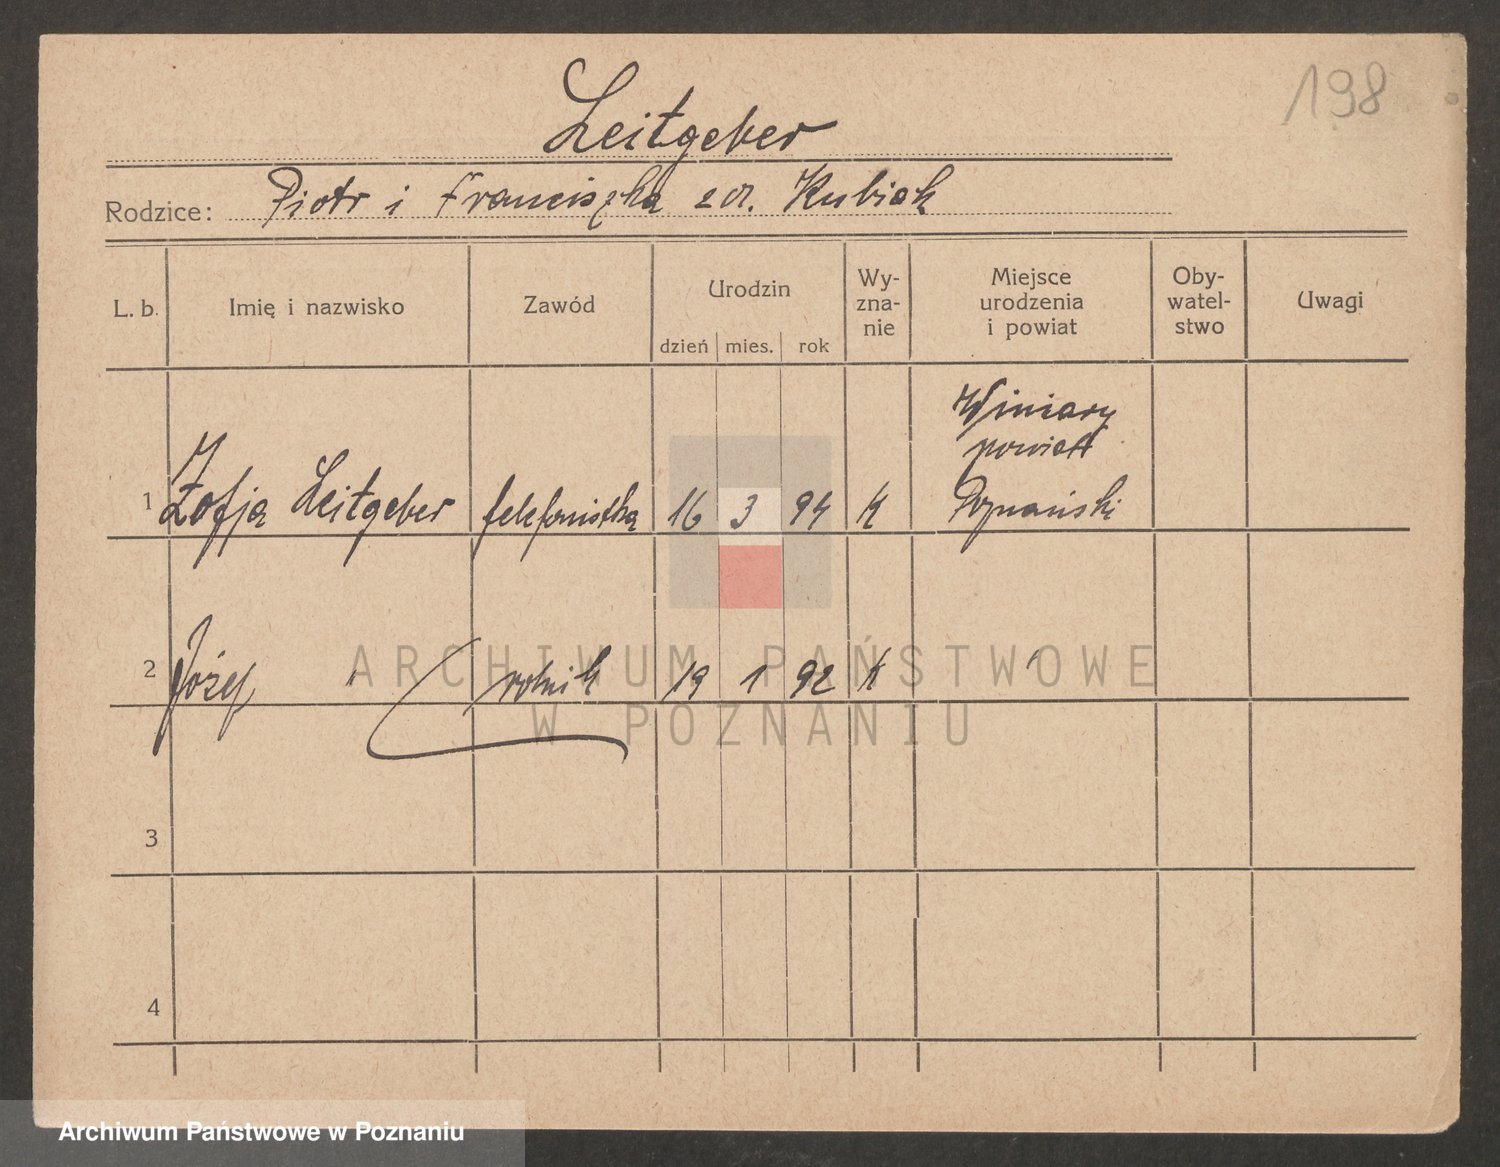 198
Leitgeber
Rodzice: Piotr i Franciszka z d. Kubiak
L. b. Imię i nazwisko Zawód Urodzin dzień mies. rok Wy-zna-nie Miejsce urodzenia i powiat Oby-watel-stwo Uwagi
1 Zofja Leitgeber telefonistka 16 3 94 K Winiary powiat Poznański
2 Józef " rolnik 19 1 92 K
3
4
ARCHIWUM PAŃSTWOWE
W POZNANIU
Archiwum Państwowe w Poznaniu